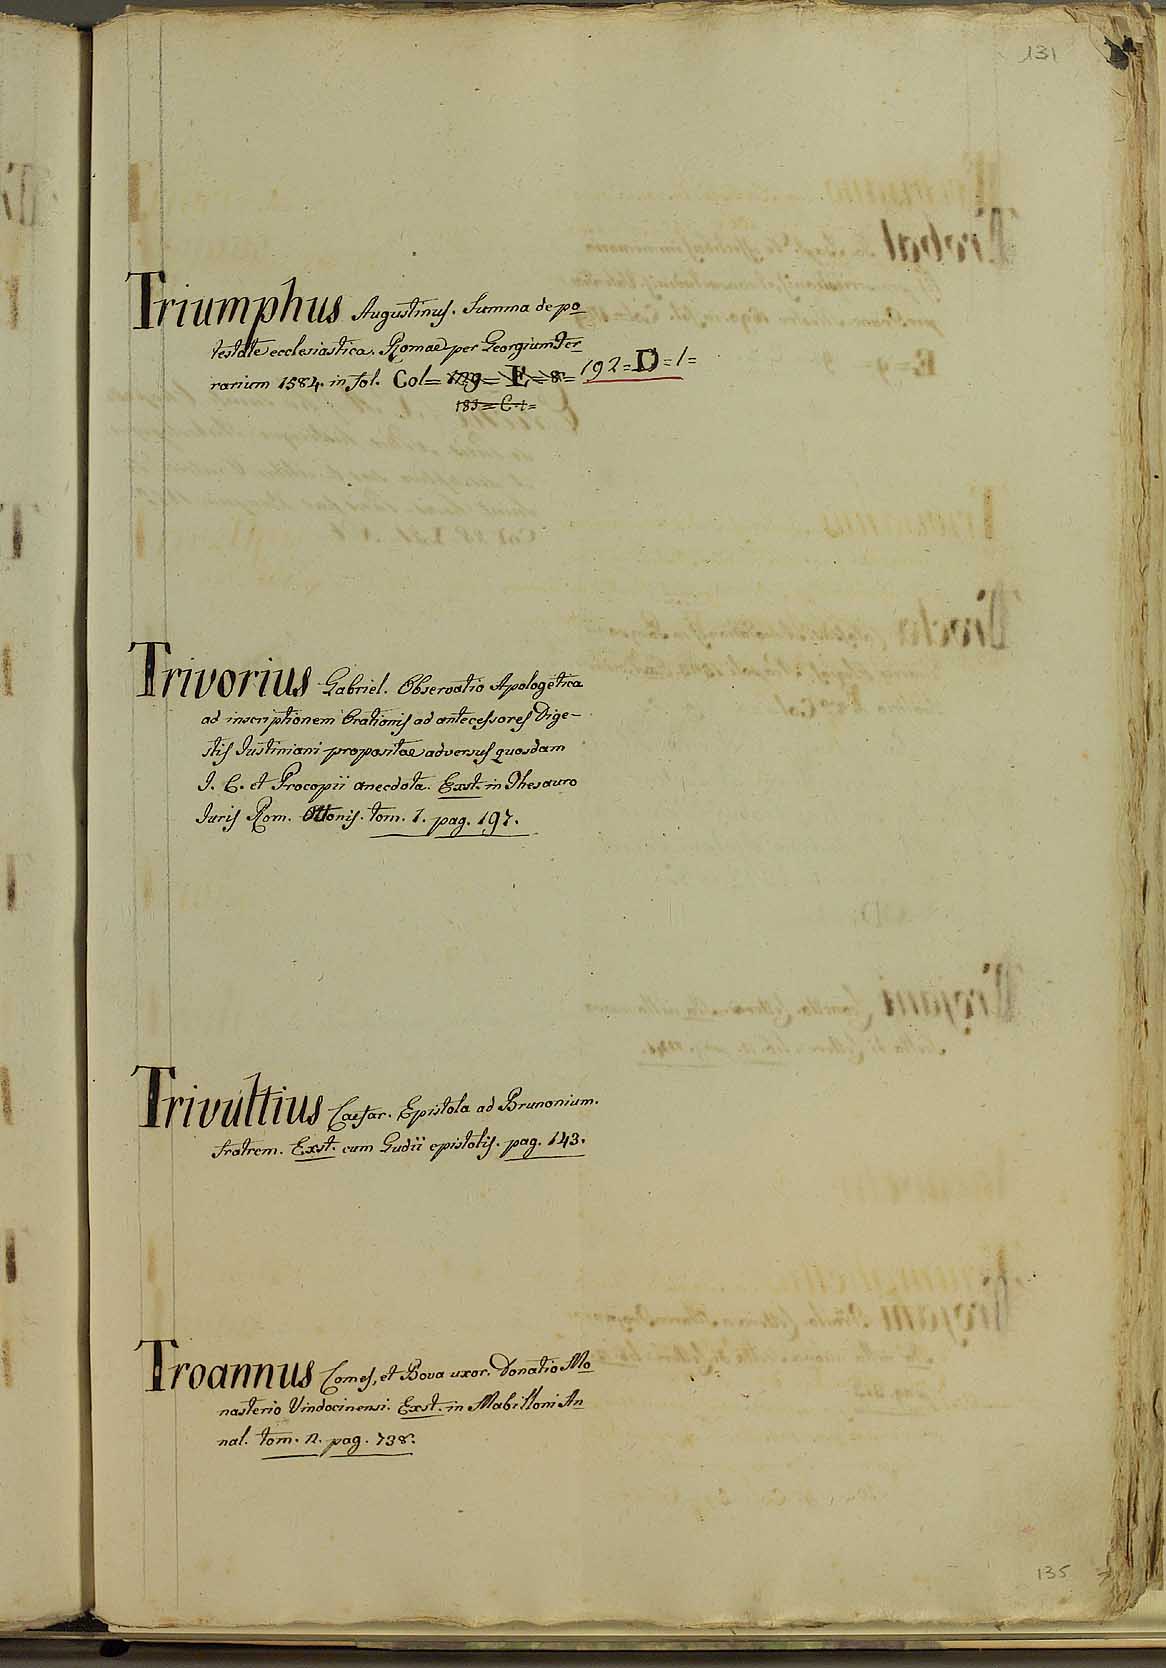 131
Triumphus Augustinus. Summa de po
testate ecclesiastica. Romae per Georgium Fer
rarium 1584. in fol. Col= 129= E= 8= 192=D=1=
183= C=1=
Trivorius Gabriel. Observatio Apologetica
ad inscriptionem Orationis ad antecessores Dige-
stis Justiniani propositae adversus quosdam
J. C. et Procopii anecdota. Exst. in Thesauro
Juris Rom. Ottonis. tom. 1. pag. 197.
Trivultius Caesar. Epistola ad Brunonium.
fratrem. Exst. cum Gudii epistolis. pag. 143.
Troannus Comes, et Bova uxor. Donatio Mo
nasterio Vindocinensi. Exst. in Mabilloni An
nal. tom. 2. pag. 738.
135